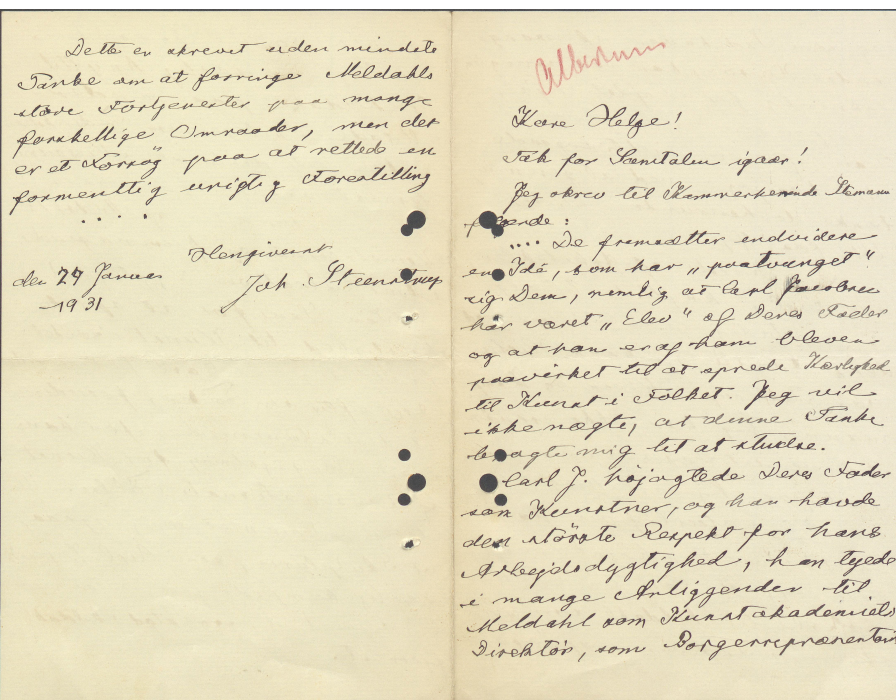 Dette er skrevet uden mindste
Tanke om at forringe Meldahls
store Fortjenester paa mange
forskellige Omraader, men det
er et Forsøg paa at rettede en
formentlig urigtig Forestilling
. . . .
Hengivenst
den 27 Januar Joh. Steenstrup
1931
Kære Helge!
Tak for Samtalen igaar!
Jeg skrev til Kammerherreinde Stemann
følgende:
.... De fremsætter endvidere
en Idé, som har „paatvunget"
sig Dem, nemlig at Carl Jacobsen
har været „Elev" af Deres Fader
og at han er af ham bleven
paavirket til at sprede Kærlighed
til Kunst i Folket. Jeg vil
ikke nægte, at denne Tanke
bragte mig til at studse.
Carl J. højagtede Deres Fader
som Kunstner, og han havde
den største Respekt for hans
Arbejdsdygtighed, han tyede
i mange Anliggender til
Meldahl som Kunstakademiets
Direktør, som Borgerrepræsentant